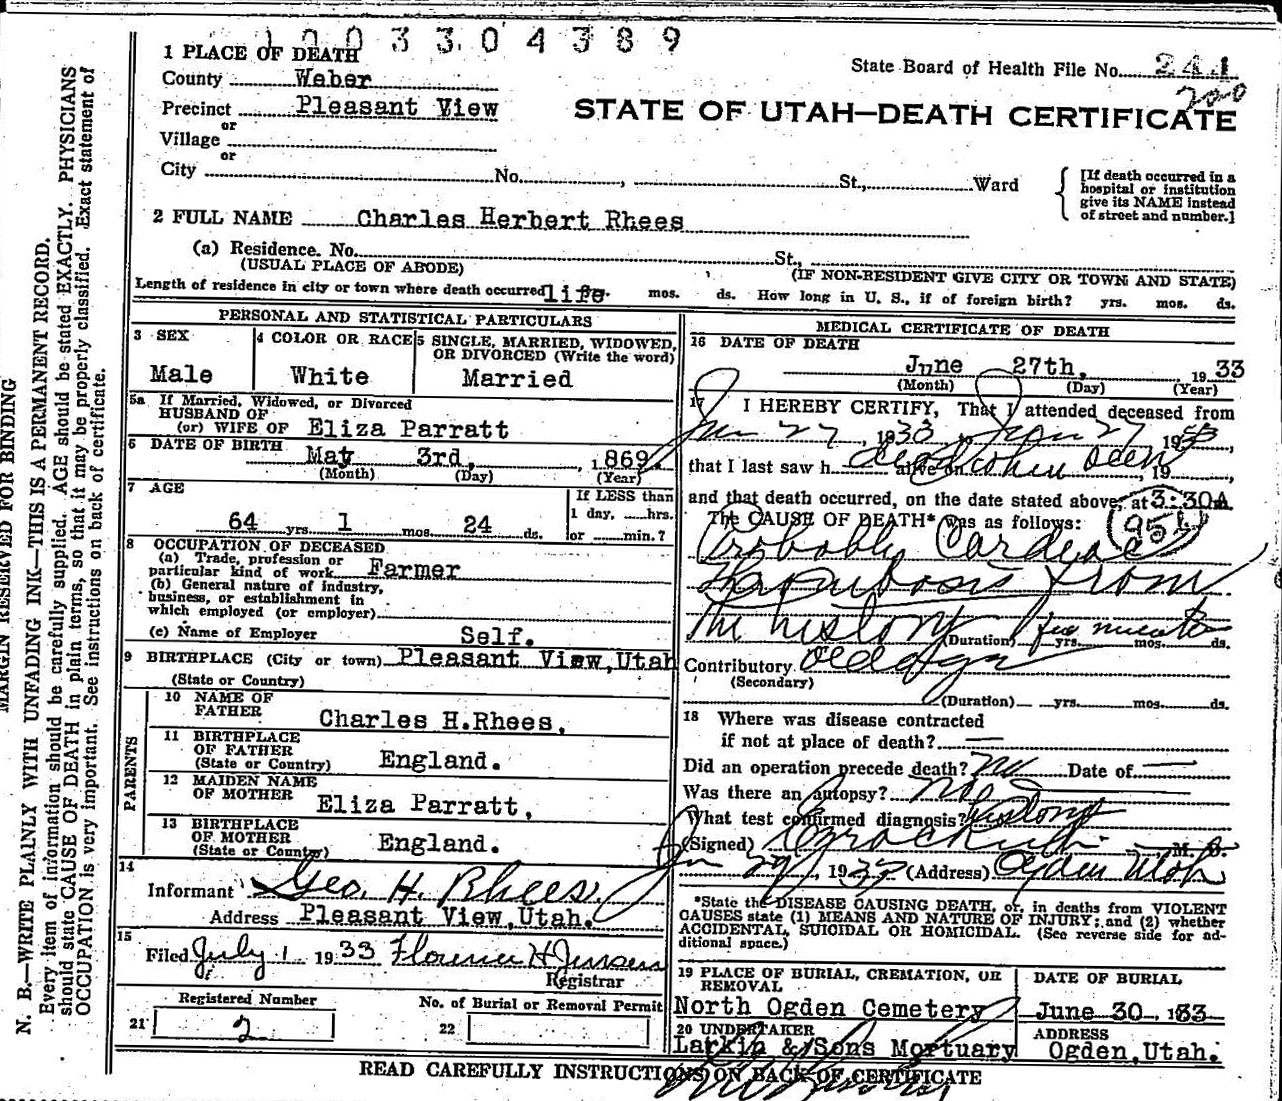 1003304389
1 PLACE OF DEATH
State Board of Health File No. 244
200
County Weber
STATE OF UTAH—DEATH CERTIFICATE
Precinct Pleasant View
or
Village
or
City No. , St., Ward
[If death occurred in a
hospital or institution
give its NAME instead
of street and number.]
2 FULL NAME Charles Herbert Rhees
(a) Residence. No. St.,
(USUAL PLACE OF ABODE) (IF NON-RESIDENT GIVE CITY OR TOWN AND STATE)
Length of residence in city or town where death occurred life mos. ds. How long in U. S., if of foreign birth? yrs. mos. ds.
PERSONAL AND STATISTICAL PARTICULARS
3 SEX
Male
4 COLOR OR RACE
White
5 SINGLE, MARRIED, WIDOWED,
OR DIVORCED (Write the word)
Married
5a If Married, Widowed, or Divorced
HUSBAND OF
(or) WIFE OF Eliza Parratt
6 DATE OF BIRTH
May 3rd, , 1869.
(Month) (Day) (Year)
7 AGE
64 yrs. 1 mos. 24 ds.
If LESS than
1 day, hrs.
or min.?
8 OCCUPATION OF DECEASED
(a) Trade, profession or
particular kind of work Farmer
(b) General nature of industry,
business, or establishment in
which employed (or employer)
(c) Name of Employer Self.
9 BIRTHPLACE (City or town) Pleasant View, Utah
(State or Country)
PARENTS
10 NAME OF
FATHER Charles H.Rhees,
11 BIRTHPLACE
OF FATHER
(State or Country) England.
12 MAIDEN NAME
OF MOTHER Eliza Parratt,
13 BIRTHPLACE
OF MOTHER
(State or Country) England.
14
Informant Geo. H. Rhees.
Address Pleasant View, Utah.
15
Filed July 1 1933 Florence H Jensen
Registrar
Registered Number
21 2
No. of Burial or Removal Permit
22
MEDICAL CERTIFICATE OF DEATH
16 DATE OF DEATH
June 27th, 1933
(Month) (Day) (Year)
17 I HEREBY CERTIFY, That I attended deceased from
Jun 27, 1933 to Jun 27 1933,
that I last saw h dead when seen alive on , 19
and that death occurred, on the date stated above, at 3:30A
The CAUSE OF DEATH* was as follows:
95
Probably Cardiac
Thrombosis from
the history (Duration) few minutes yrs. mos. ds.
Contributory old age
(Secondary)
(Duration) yrs. mos. ds.
18 Where was disease contracted
if not at place of death? —
Did an operation precede death? no Date of —
Was there an autopsy? no
What test confirmed diagnosis? history
(Signed) M. D.
Jun 29, 1933 (Address) Ogden Utah
*State the DISEASE CAUSING DEATH, or, in deaths from VIOLENT
CAUSES state (1) MEANS AND NATURE OF INJURY; and (2) whether
ACCIDENTAL, SUICIDAL OR HOMICIDAL. (See reverse side for ad-
ditional space.)
19 PLACE OF BURIAL, CREMATION, OR
REMOVAL
North Ogden Cemetery
DATE OF BURIAL
June 30, 1933
20 UNDERTAKER
Larkin & Sons Mortuary
ADDRESS
Ogden, Utah.
READ CAREFULLY INSTRUCTIONS ON BACK OF CERTIFICATE
MARGIN RESERVED FOR BINDING
N. B.—WRITE PLAINLY WITH UNFADING INK—THIS IS A PERMANENT RECORD.
Every item of information should be carefully supplied. AGE should be stated EXACTLY. PHYSICIANS
should state CAUSE OF DEATH in plain terms, so that it may be properly classified. Exact statement of
OCCUPATION is very important. See instructions on back of certificate.